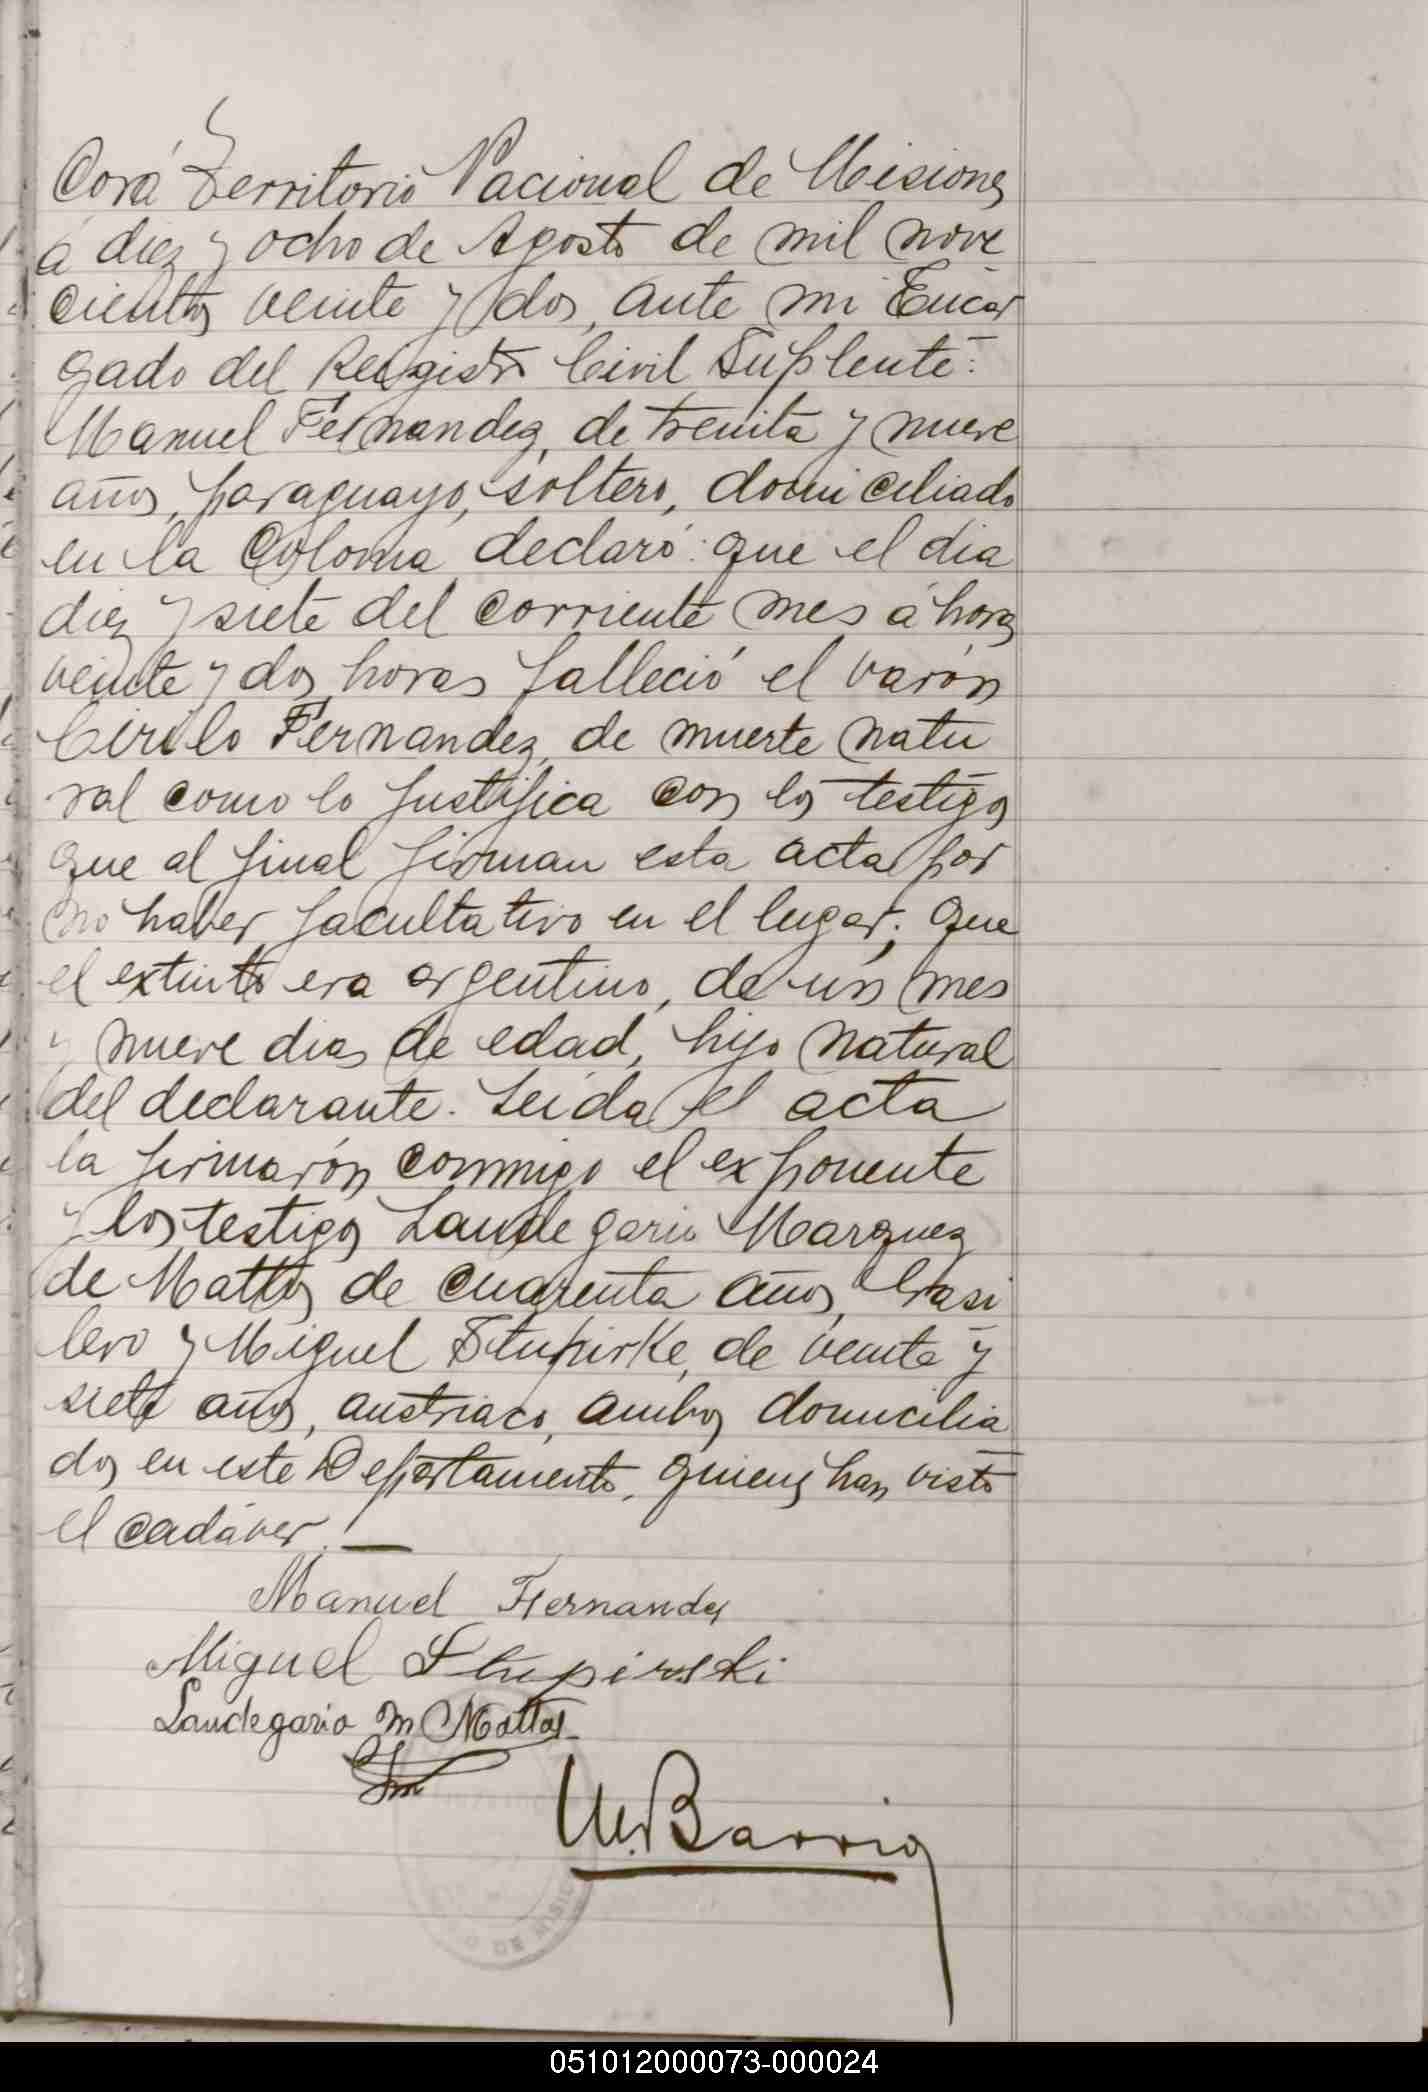 Corá Territorio Nacional de Misiones
á diez y ocho de Agosto de mil nove
cientos veinte y dos, ante mi Encar
gado del Registro Civil Suplente:
Manuel Fernandez, de treinta y nueve
años, paraguayo, soltero, domiciliado
en la Colonia declaró: que el dia
diez y siete del corriente mes á horas
veinte y dos horas falleció el varón
Cirilo Fernandez, de muerte natu
ral como lo justifica con los testigos
que al final firman esta acta por
no haber facultativo en el lugar; que
el extinto era argentino, de un mes
y nueve dias de edad, hijo natural
del declarante. Leida el acta
la firmarón conmigo el exponente
y los testigos Laudegario Marquez
de Mattos de cuarenta años, brasi
lero y Miguel Stupirke, de veinte y
siete años, austriaco, ambos domicilia
dos en este Departamento, quienes han visto
el cadáver. —
Manuel Fernandez
Miguel Stupirski
Laudegario M Mattos
M. Barrios
O DE MISIO
051012000073-000024